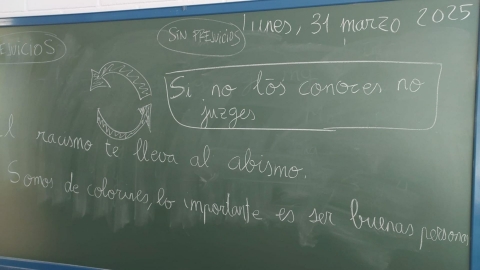 Lunes, 31 marzo 2025
EJUICIOS SIN PREJUICIOS
Si no los conoces no
juzges
El racismo te lleva al abismo.
Somos de colorines, lo importante es ser buenas personas